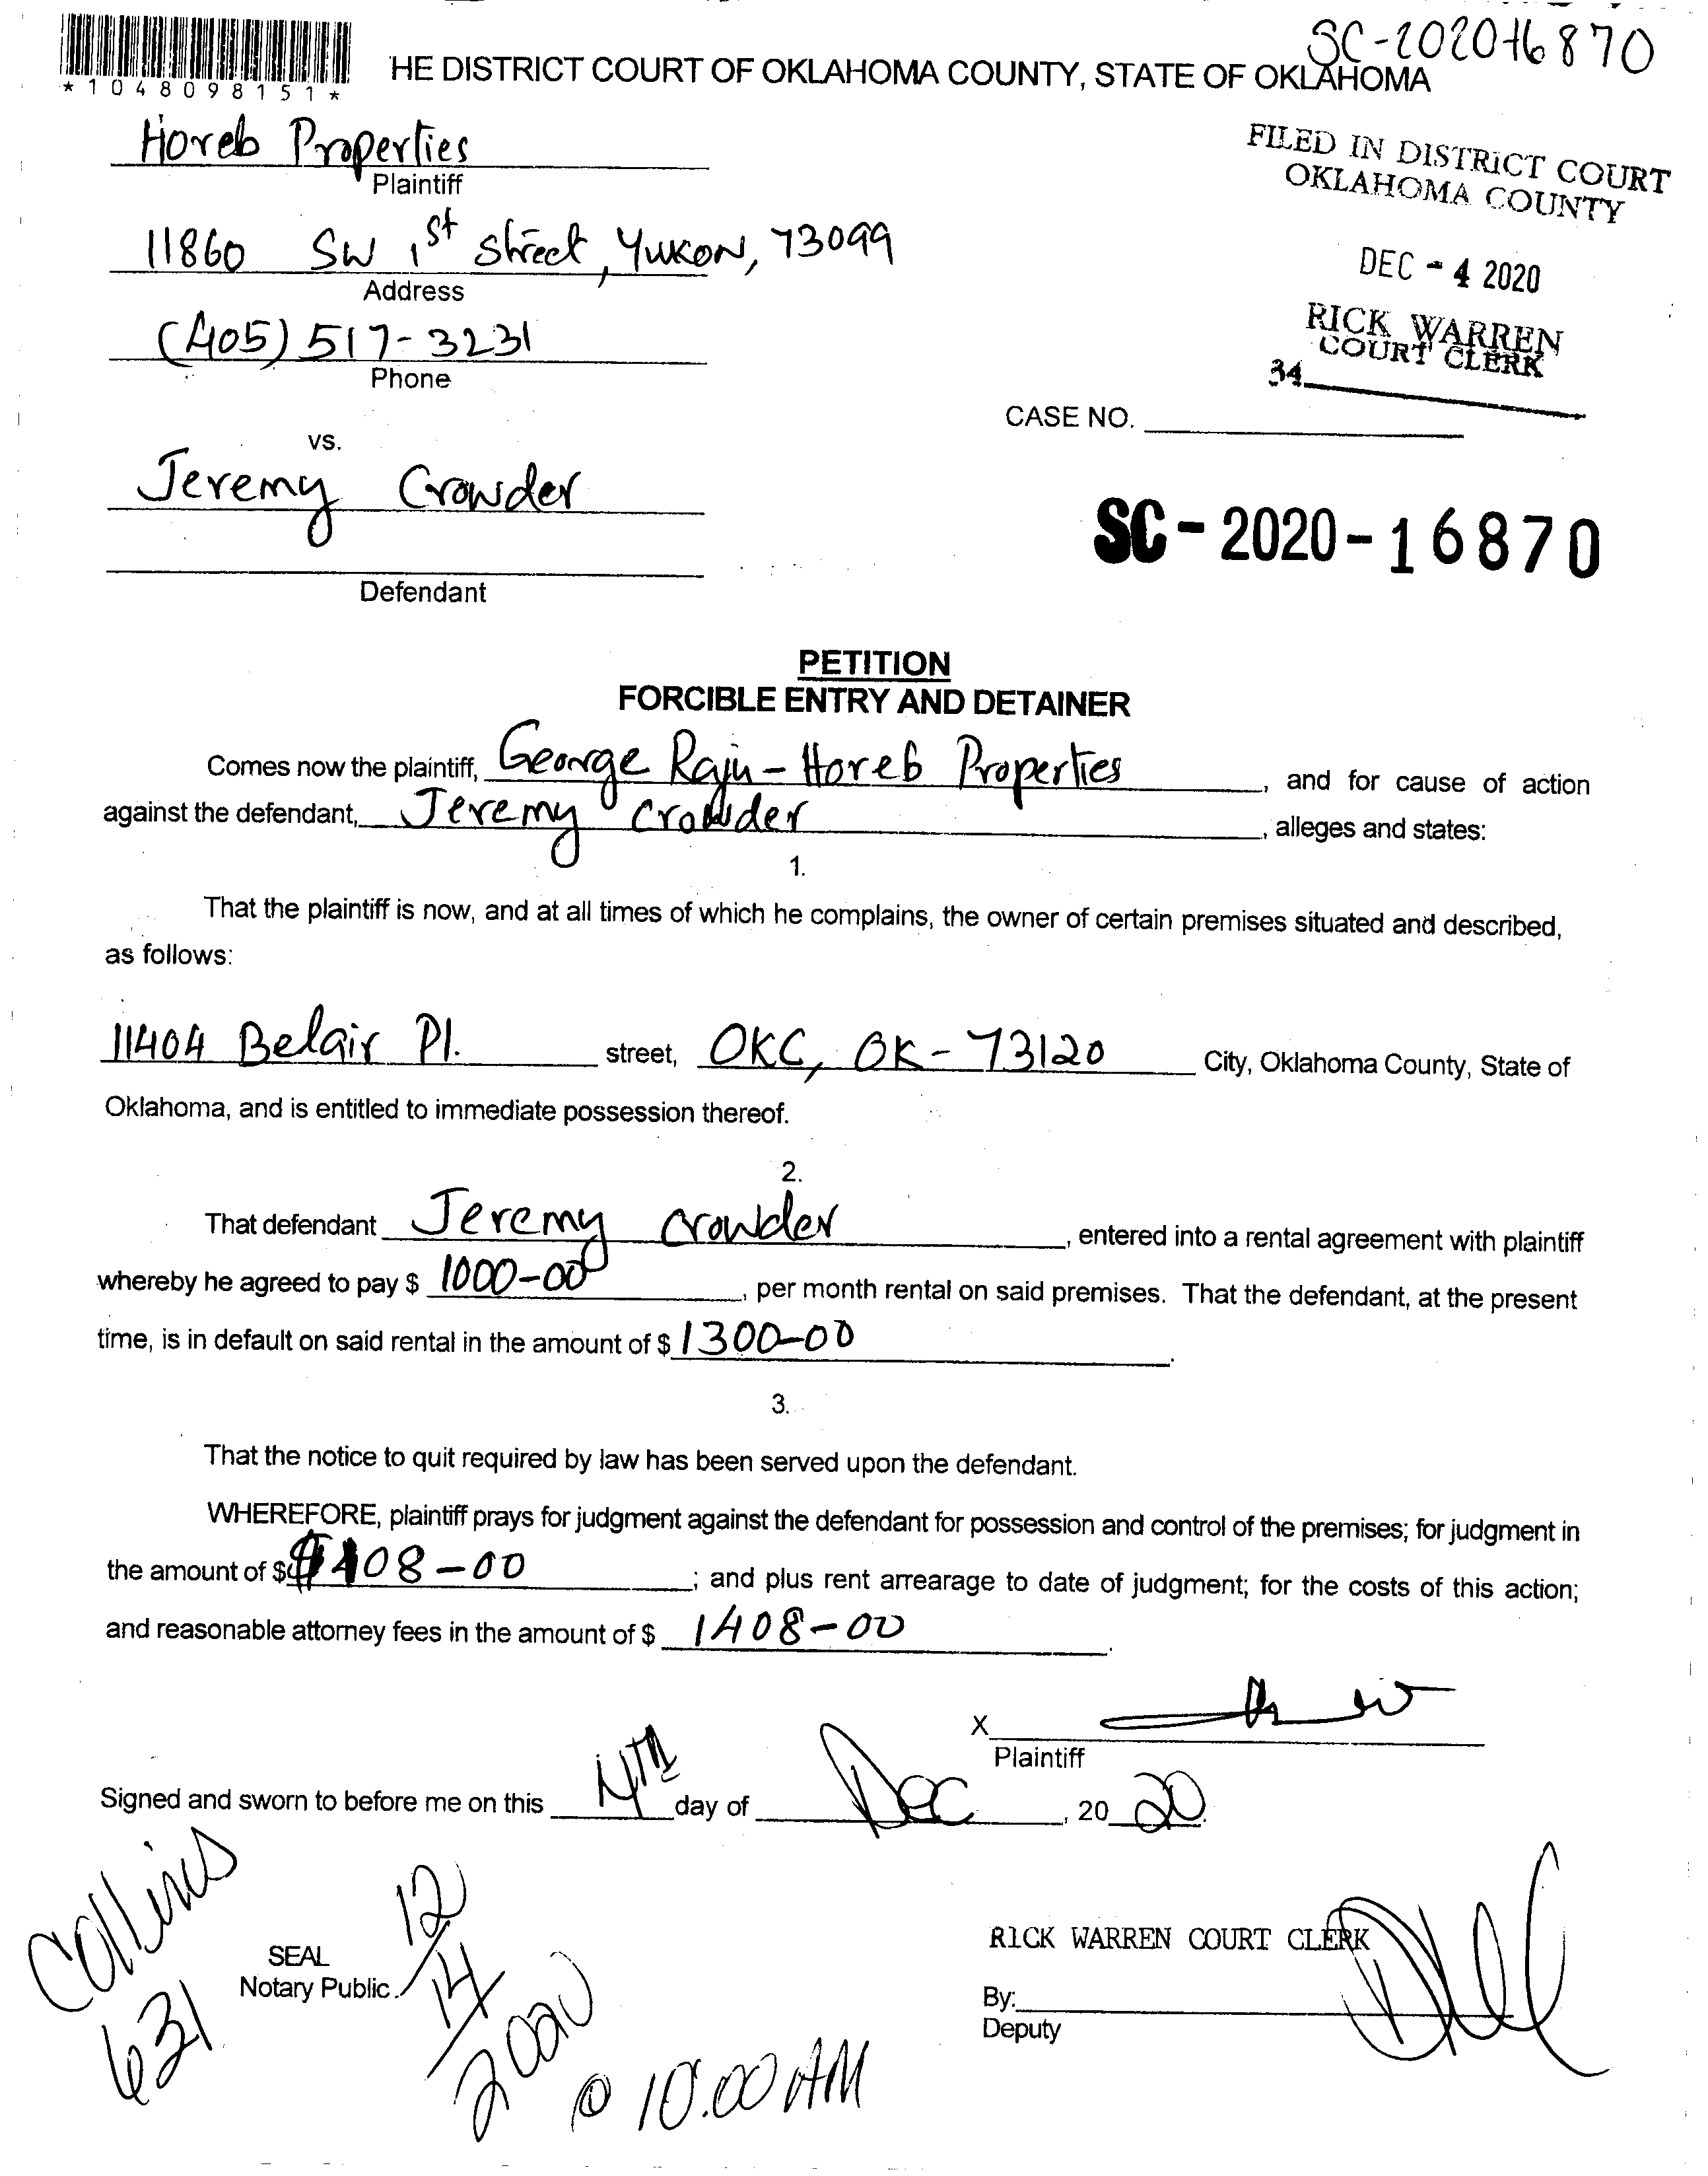 SC-2020-16870
*1048098151*
HE DISTRICT COURT OF OKLAHOMA COUNTY, STATE OF OKLAHOMA
Horeb Properties
Plaintiff
FILED IN DISTRICT COURT
OKLAHOMA COUNTY
11860 SW 1st Street, Yukon, 73099
Address
DEC - 4 2020
(405) 517-3231
Phone
RICK WARREN
COURT CLERK
34
CASE NO.
vs.
Jeremy Crowder
SC-2020-16870
Defendant
PETITION
FORCIBLE ENTRY AND DETAINER
Comes now the plaintiff, George Raju - Horeb Properties, and for cause of action
against the defendant, Jeremy Crowder, alleges and states:
1.
That the plaintiff is now, and at all times of which he complains, the owner of certain premises situated and described,
as follows:
11404 Belair Pl. street, OKC, OK - 73120 City, Oklahoma County, State of
Oklahoma, and is entitled to immediate possession thereof.
2.
That defendant Jeremy Crowder, entered into a rental agreement with plaintiff
whereby he agreed to pay $ 1000-00, per month rental on said premises. That the defendant, at the present
time, is in default on said rental in the amount of $ 1300-00.
3.
That the notice to quit required by law has been served upon the defendant.
WHEREFORE, plaintiff prays for judgment against the defendant for possession and control of the premises; for judgment in
the amount of $ ; and plus rent arrearage to date of judgment; for the costs of this action;
and reasonable attorney fees in the amount of $ 1408-00.
X
Plaintiff
Signed and sworn to before me on this 4th day of Dec, 2020.
Collins
631
SEAL
Notary Public
12/14/2020
@ 10.00 AM
RICK WARREN COURT CLERK
By:
Deputy